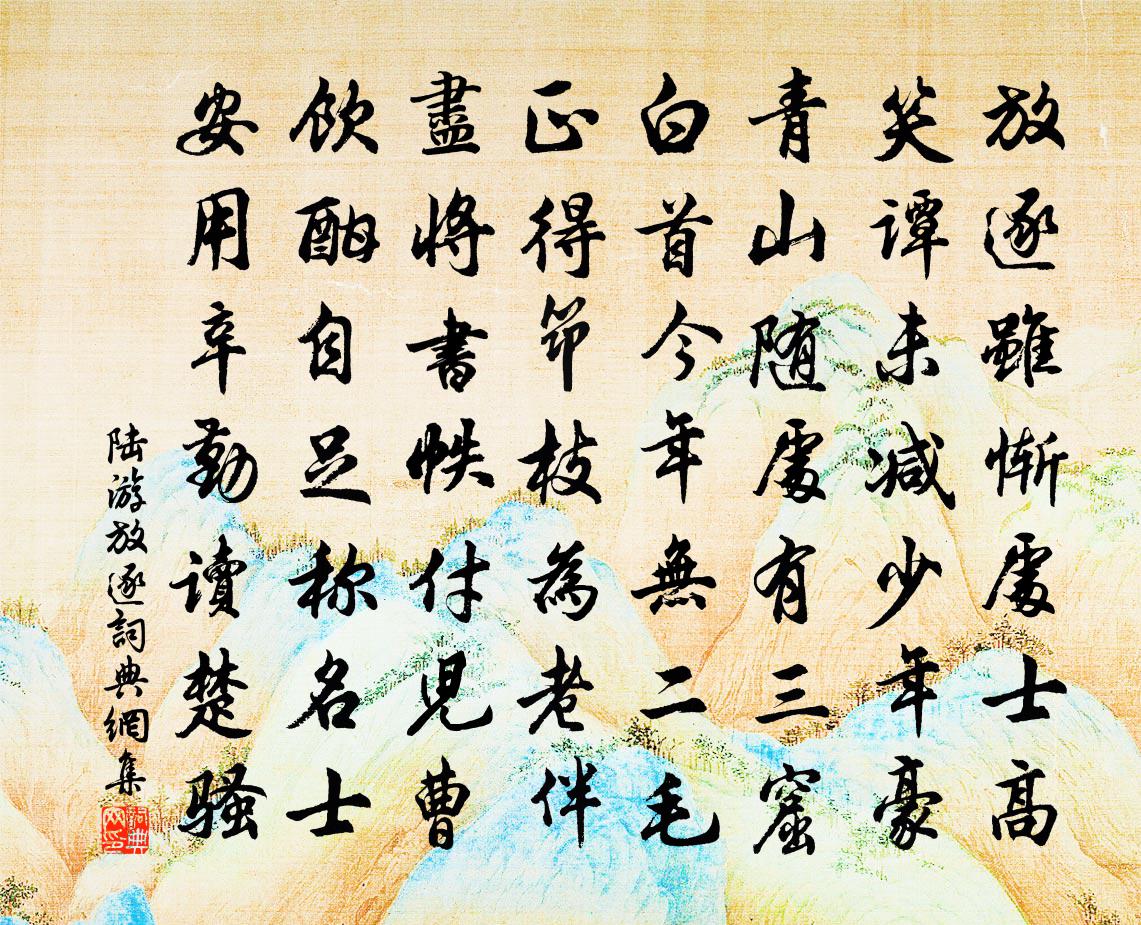 放逐雖慚處士高
笑譚未減少年豪
青山随處有三窟
白首今年無二毛
正得筇枝為老伴
盡將書帙付兒曹
飲酣自足称名士
安用辛勤讀楚騷
陸游放逐詞典網集
詞典网印